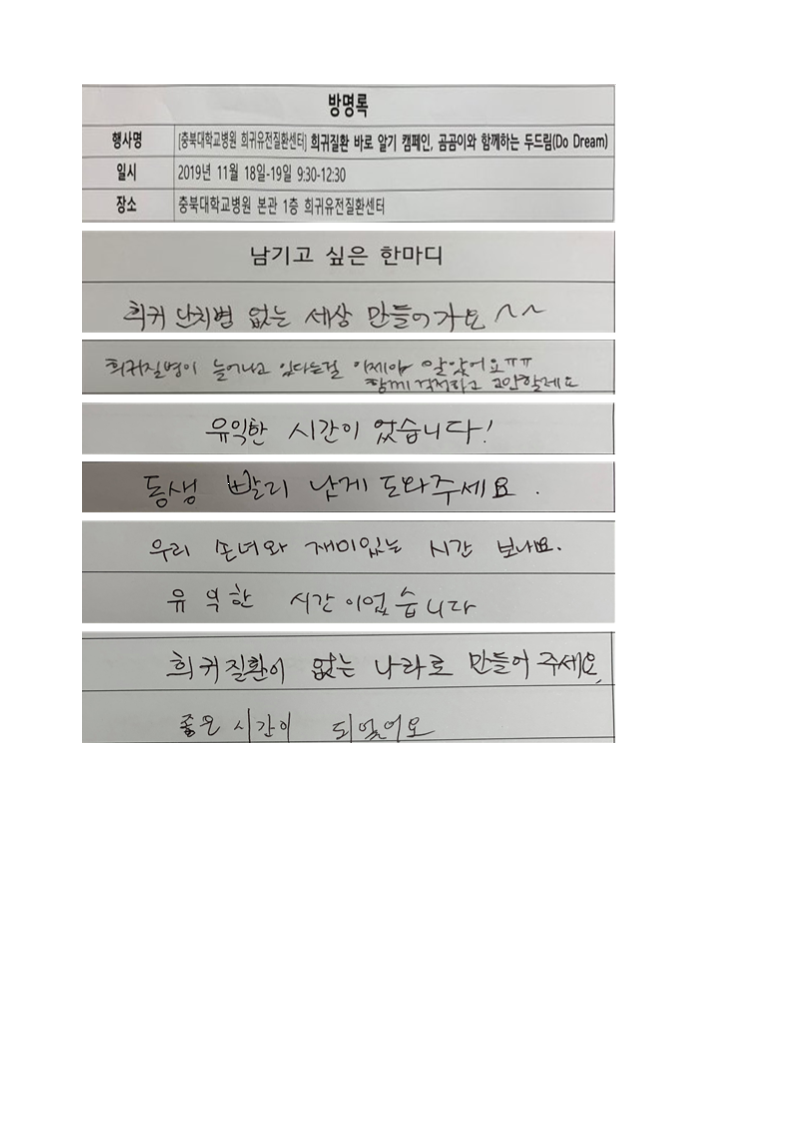 방명록
행사명 [충북대학교병원 희귀유전질환센터] 희귀질환 바로 알기 캠페인, 곰곰이와 함께하는 두드림(Do Dream)
일시 2019년 11월 18일-19일 9:30-12:30
장소 충북대학교병원 본관 1층 희귀유전질환센터
남기고 싶은 한마디
희귀 난치병 없는 세상 만들어가요 ~~
희귀질병이 늘어나고 있다는걸 이제야 알았어요ㅠㅠ
함께 걱정하고 고민할게요
유익한 시간이 었습니다!
동생 빨리 낫게 도와주세요.
우리 손녀와 재미있는 시간 보내요.
유익한 시간이었습니다
희귀질환이 없는 나라로 만들어 주세요.
좋은 시간이 되었어요